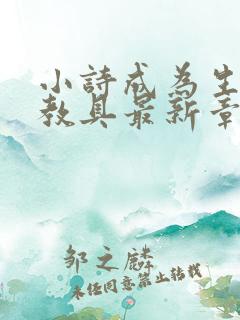 小詩成為生
教具最新章
邹之麟
未经同意禁止转载